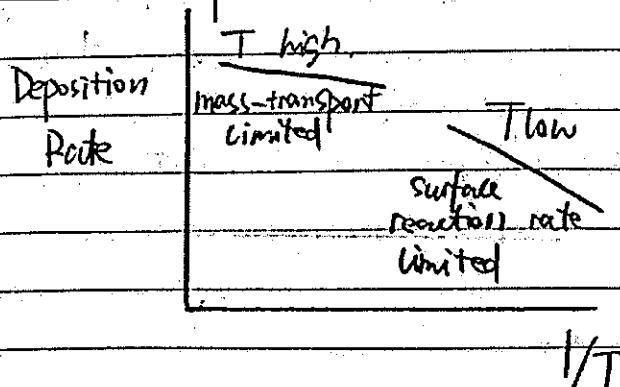 T high
Deposition
Rate
mass-transport
limited
T low
surface
reaction rate
limited
1/T